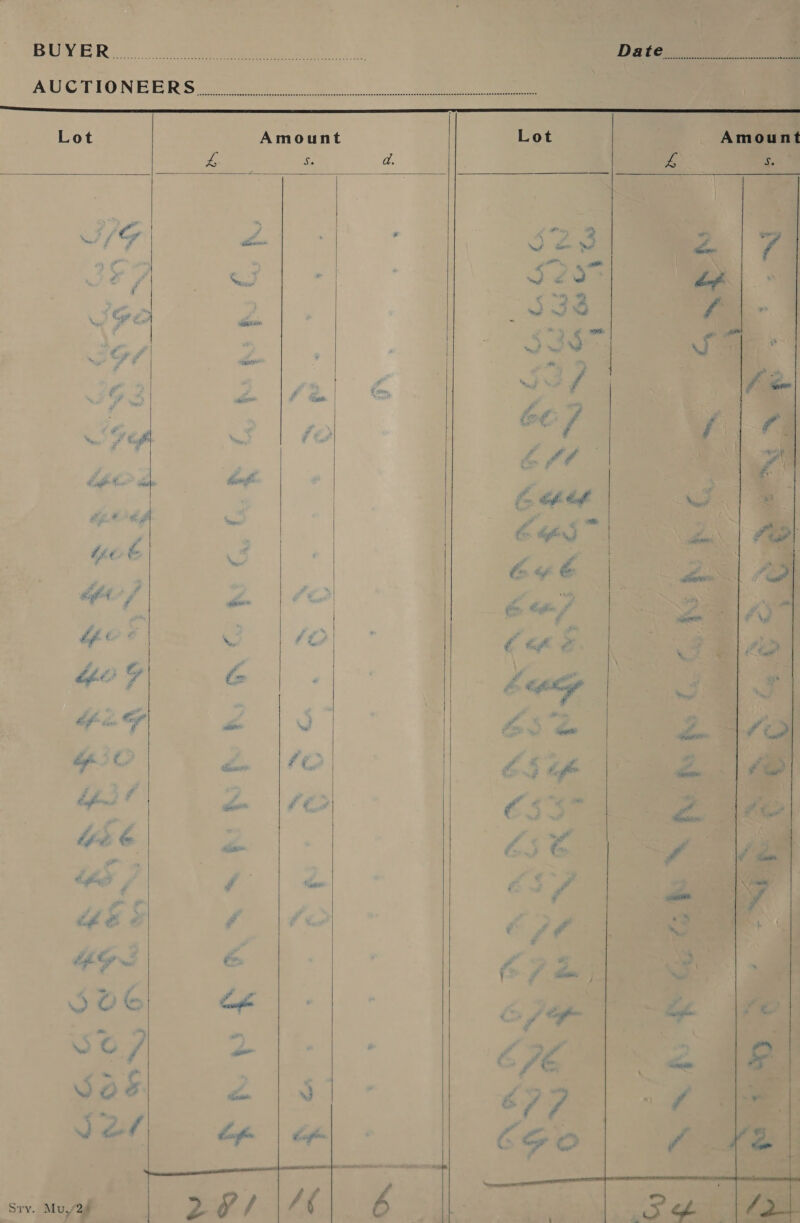 BUYER
Date
AUCTIONEERS
Lot Amount Lot Amount
£ s. d. £ s.
319 2 . . 523 2 7
387 3 . . 525 4 .
390 2 533 1 .
391 2 . 535 5 .
393 2 12 6 537 12
394 3 10 607 1 1
402 4 . 611 7
404 3 644 3 .
406 3 . 645 2 10
407 2 10 646 2 10
408 3 10 . 647 2 15
409 6 . 648 3 10
429 2 5 649 3 3
430 2 10 652 2 10
431 2 10 654 2 10
456 2 655 2 10
457 1 2 656 1 12
488 1 10 657 2 7
493 6 . . 671 3
506 4 . 672 3 .
507 2 . . 674 4 10
508 2 5 . 676 2 2
521 4 4 . 677 1
690 1 12
281 16 6 34 12
Sty. Mu./2